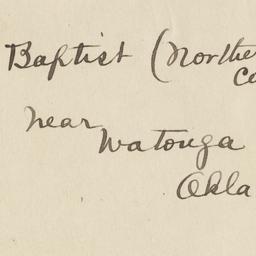 Baptist (Northe
Co
near
Watonga
Okla